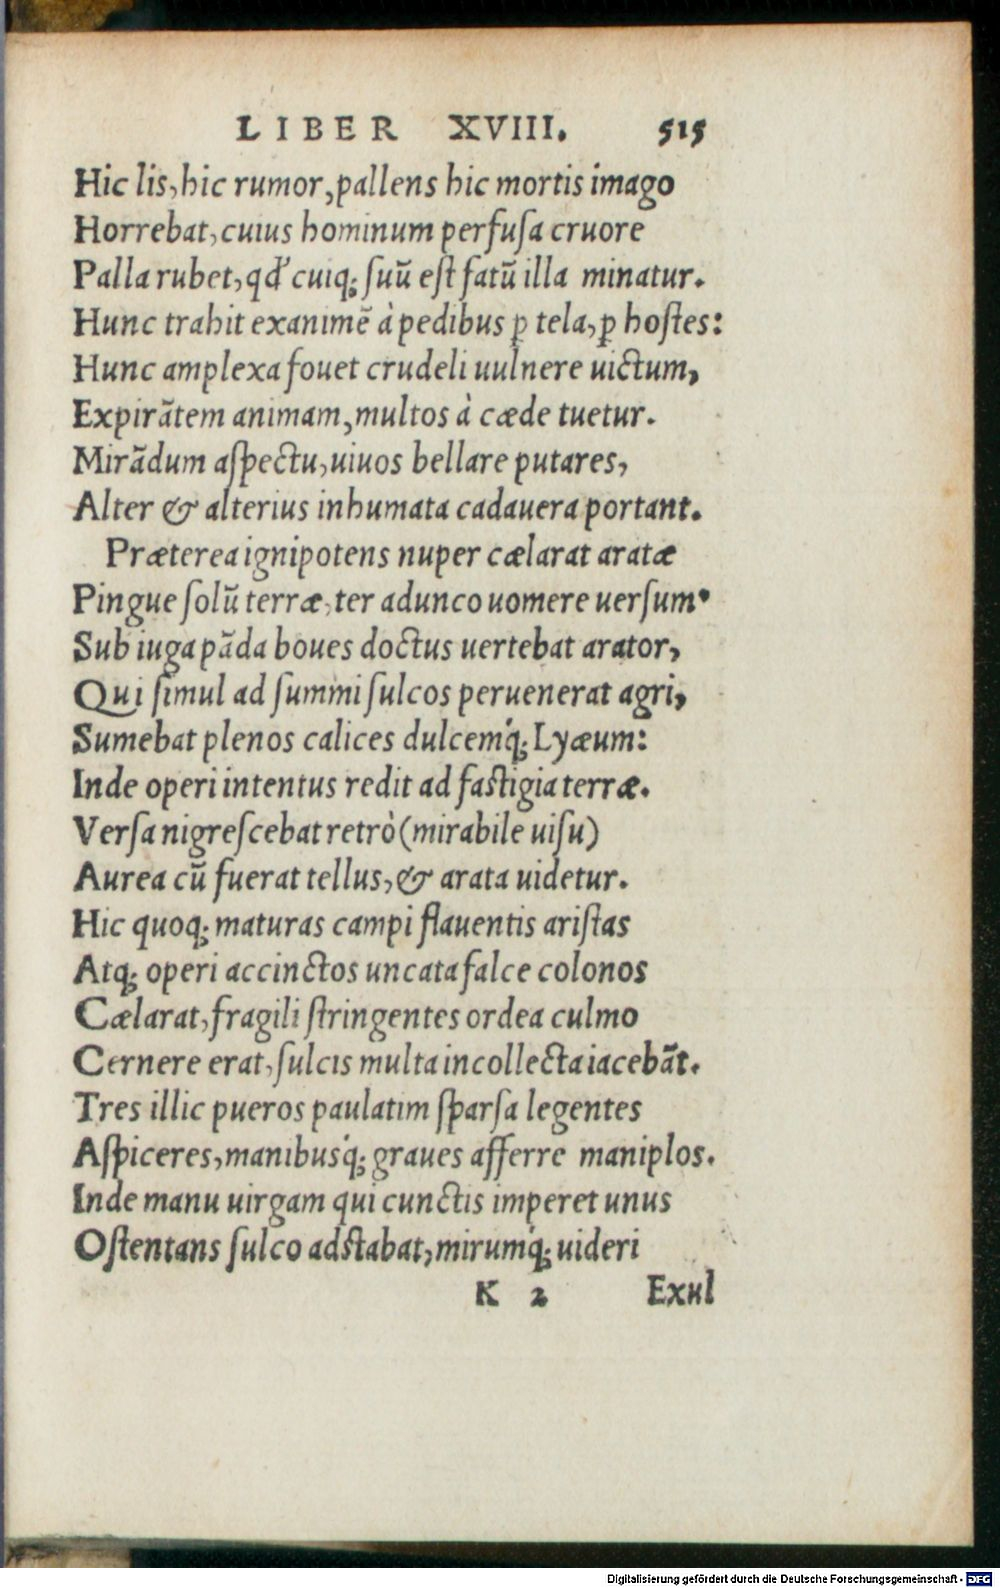 LIBER XVIII. 515
Hic lis, hic rumor, pallens hic mortis imago
Horrebat, cuius hominum perfuſa cruore
Palla rubet, qđ cuiq; ſuū eſt fatū illa minatur.
Hunc trahit exanimē à pedibus ꝑ tela, ꝑ hoſtes:
Hunc amplexa fouet crudeli uulnere uictum,
Expirātem animam, multos à cæde tuetur.
Mirādum aſpectu, uiuos bellare putares,
Alter & alterius inhumata cadauera portant.
Præterea ignipotens nuper cælarat aratæ
Pingue ſolū terræ, ter adunco uomere uerſum.
Sub iuga pāda boues doctus uertebat arator,
Qui ſimul ad ſummi ſulcos peruenerat agri,
Sumebat plenos calices dulcemq́; Lyæum:
Inde operi intentus redit ad faſtigia terræ.
Verſa nigreſcebat retrò (mirabile uiſu)
Aurea cū fuerat tellus, & arata uidetur.
Hic quoq; maturas campi flauentis ariſtas
Atq; operi accinctos uncata falce colonos
Cælarat, fragili ſtringentes ordea culmo
Cernere erat, ſulcis multa incollecta iacebāt.
Tres illic pueros paulatim ſparſa legentes
Aſpiceres, manibusq́; graues afferre maniplos.
Inde manu uirgam qui cunctis imperet unus
Oſtentans ſulco adſtabat, mirumq́; uideri
K 2 Exul
Digitalisierung gefördert durch die Deutsche Forschungsgemeinschaft - DFG